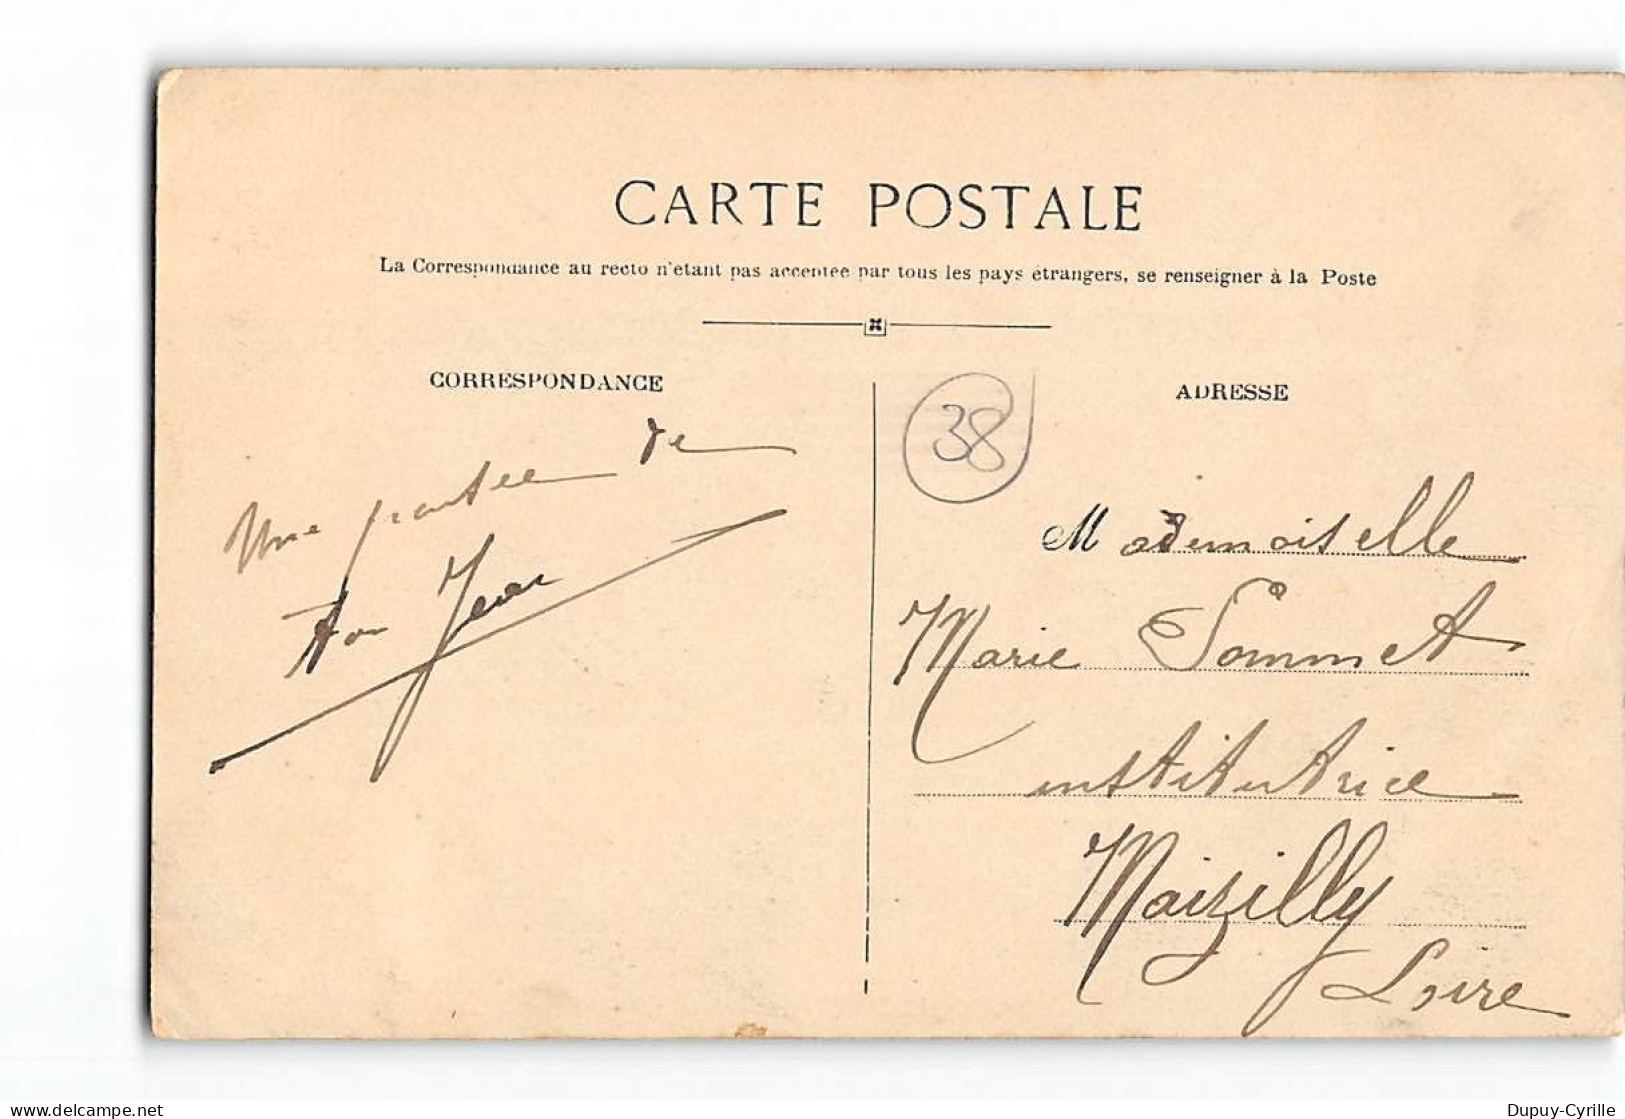 CARTE POSTALE
La Correspondance au recto n'etant pas acceptee par tous les pays étrangers, se renseigner à la Poste
CORRESPONDANCE
Une pensée de
ton Jean
ADRESSE
38
Mademoiselle
Marie Sommet
institutrice
Maizilly
Loire
www.delcampe.net
Dupuy-Cyrille